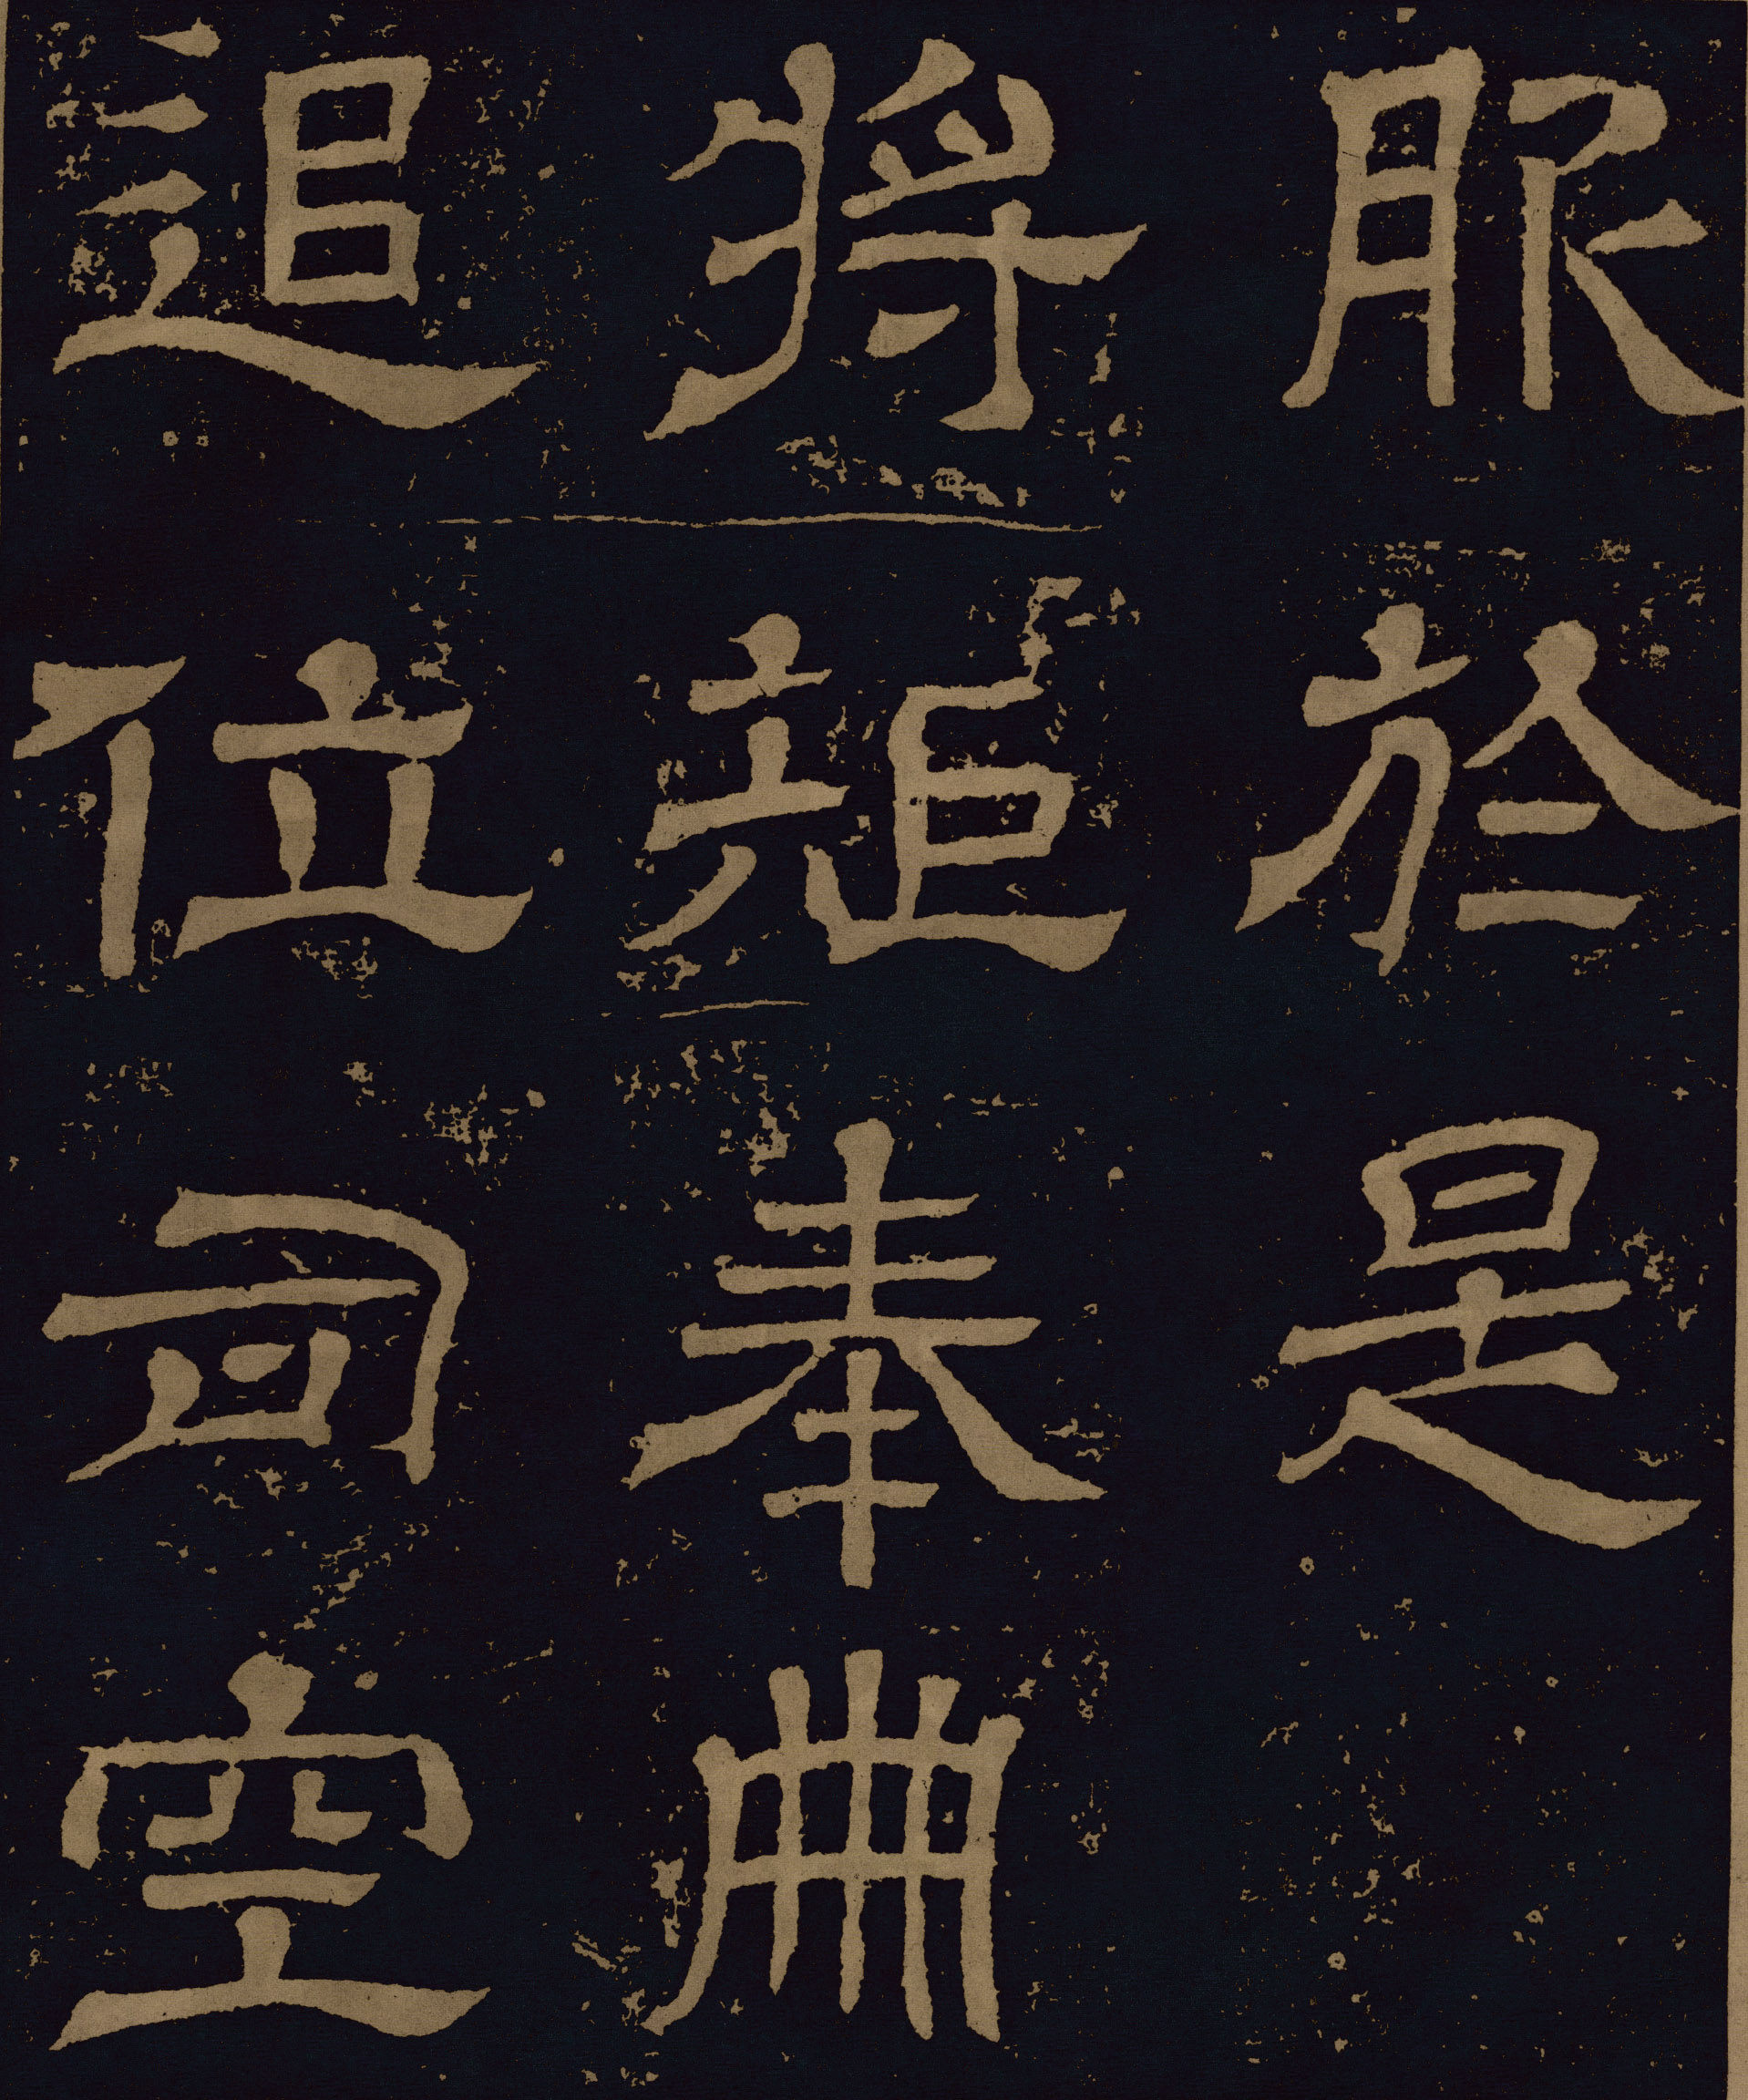 服於是
將矩奉冊
追位司空